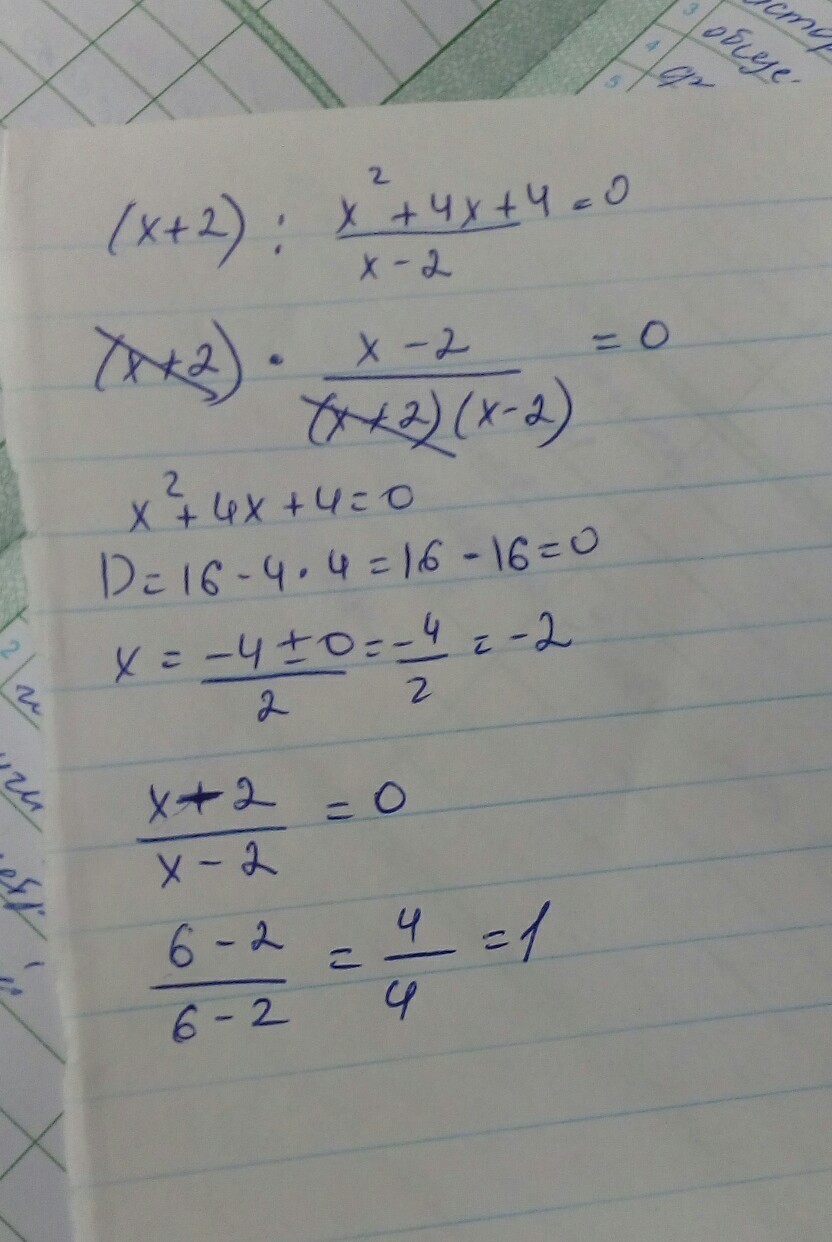 3 истор
4 обще-
5 фр
(x+2) : x²+4x+4 / x-2 = 0
(x+2) · x-2 / (x+2)(x-2) = 0
x²+4x+4=0
D=16-4·4=16-16=0
x = -4±0 / 2 = -4 / 2 = -2
2
x+2 / x-2 = 0
6-2 / 6-2 = 4 / 4 = 1